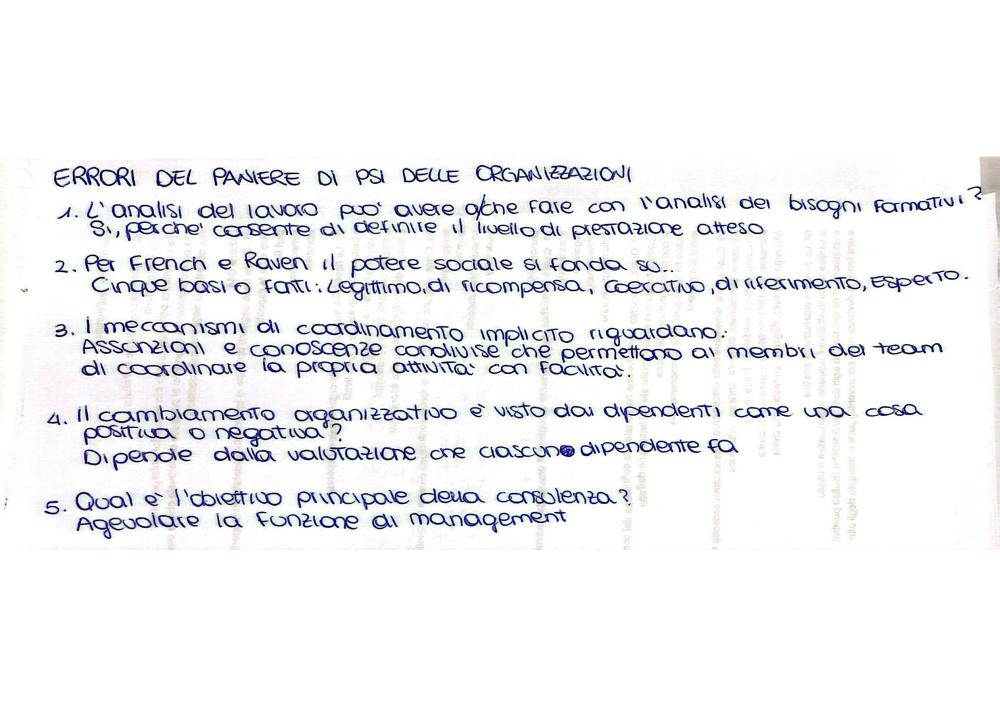 ERRORI DEL PANIERE DI PSI DELLE ORGANIZZAZIONI
1. L'analisi del lavoro può avere a che fare con l'analisi dei bisogni formativi?
Si, perchè consente di definire il livello di prestazione atteso
2. Per French e Raven il potere sociale si fonda su..
Cinque basi o fatti: Legittimo, di ricompensa, coercitivo, di riferimento, Esperto.
3. I meccanismi di coordinamento implicito riguardano:
Assunzioni e conoscenze condivise che permettono ai membri del team
di coordinare la propria attività con facilità.
4. Il cambiamento organizzativo è visto dai dipendenti come una cosa
positiva o negativa?
Dipende dalla valutazione che ciascuno dipendente fa
5. Qual è l'obiettivo principale della consulenza?
Agevolare la funzione di management